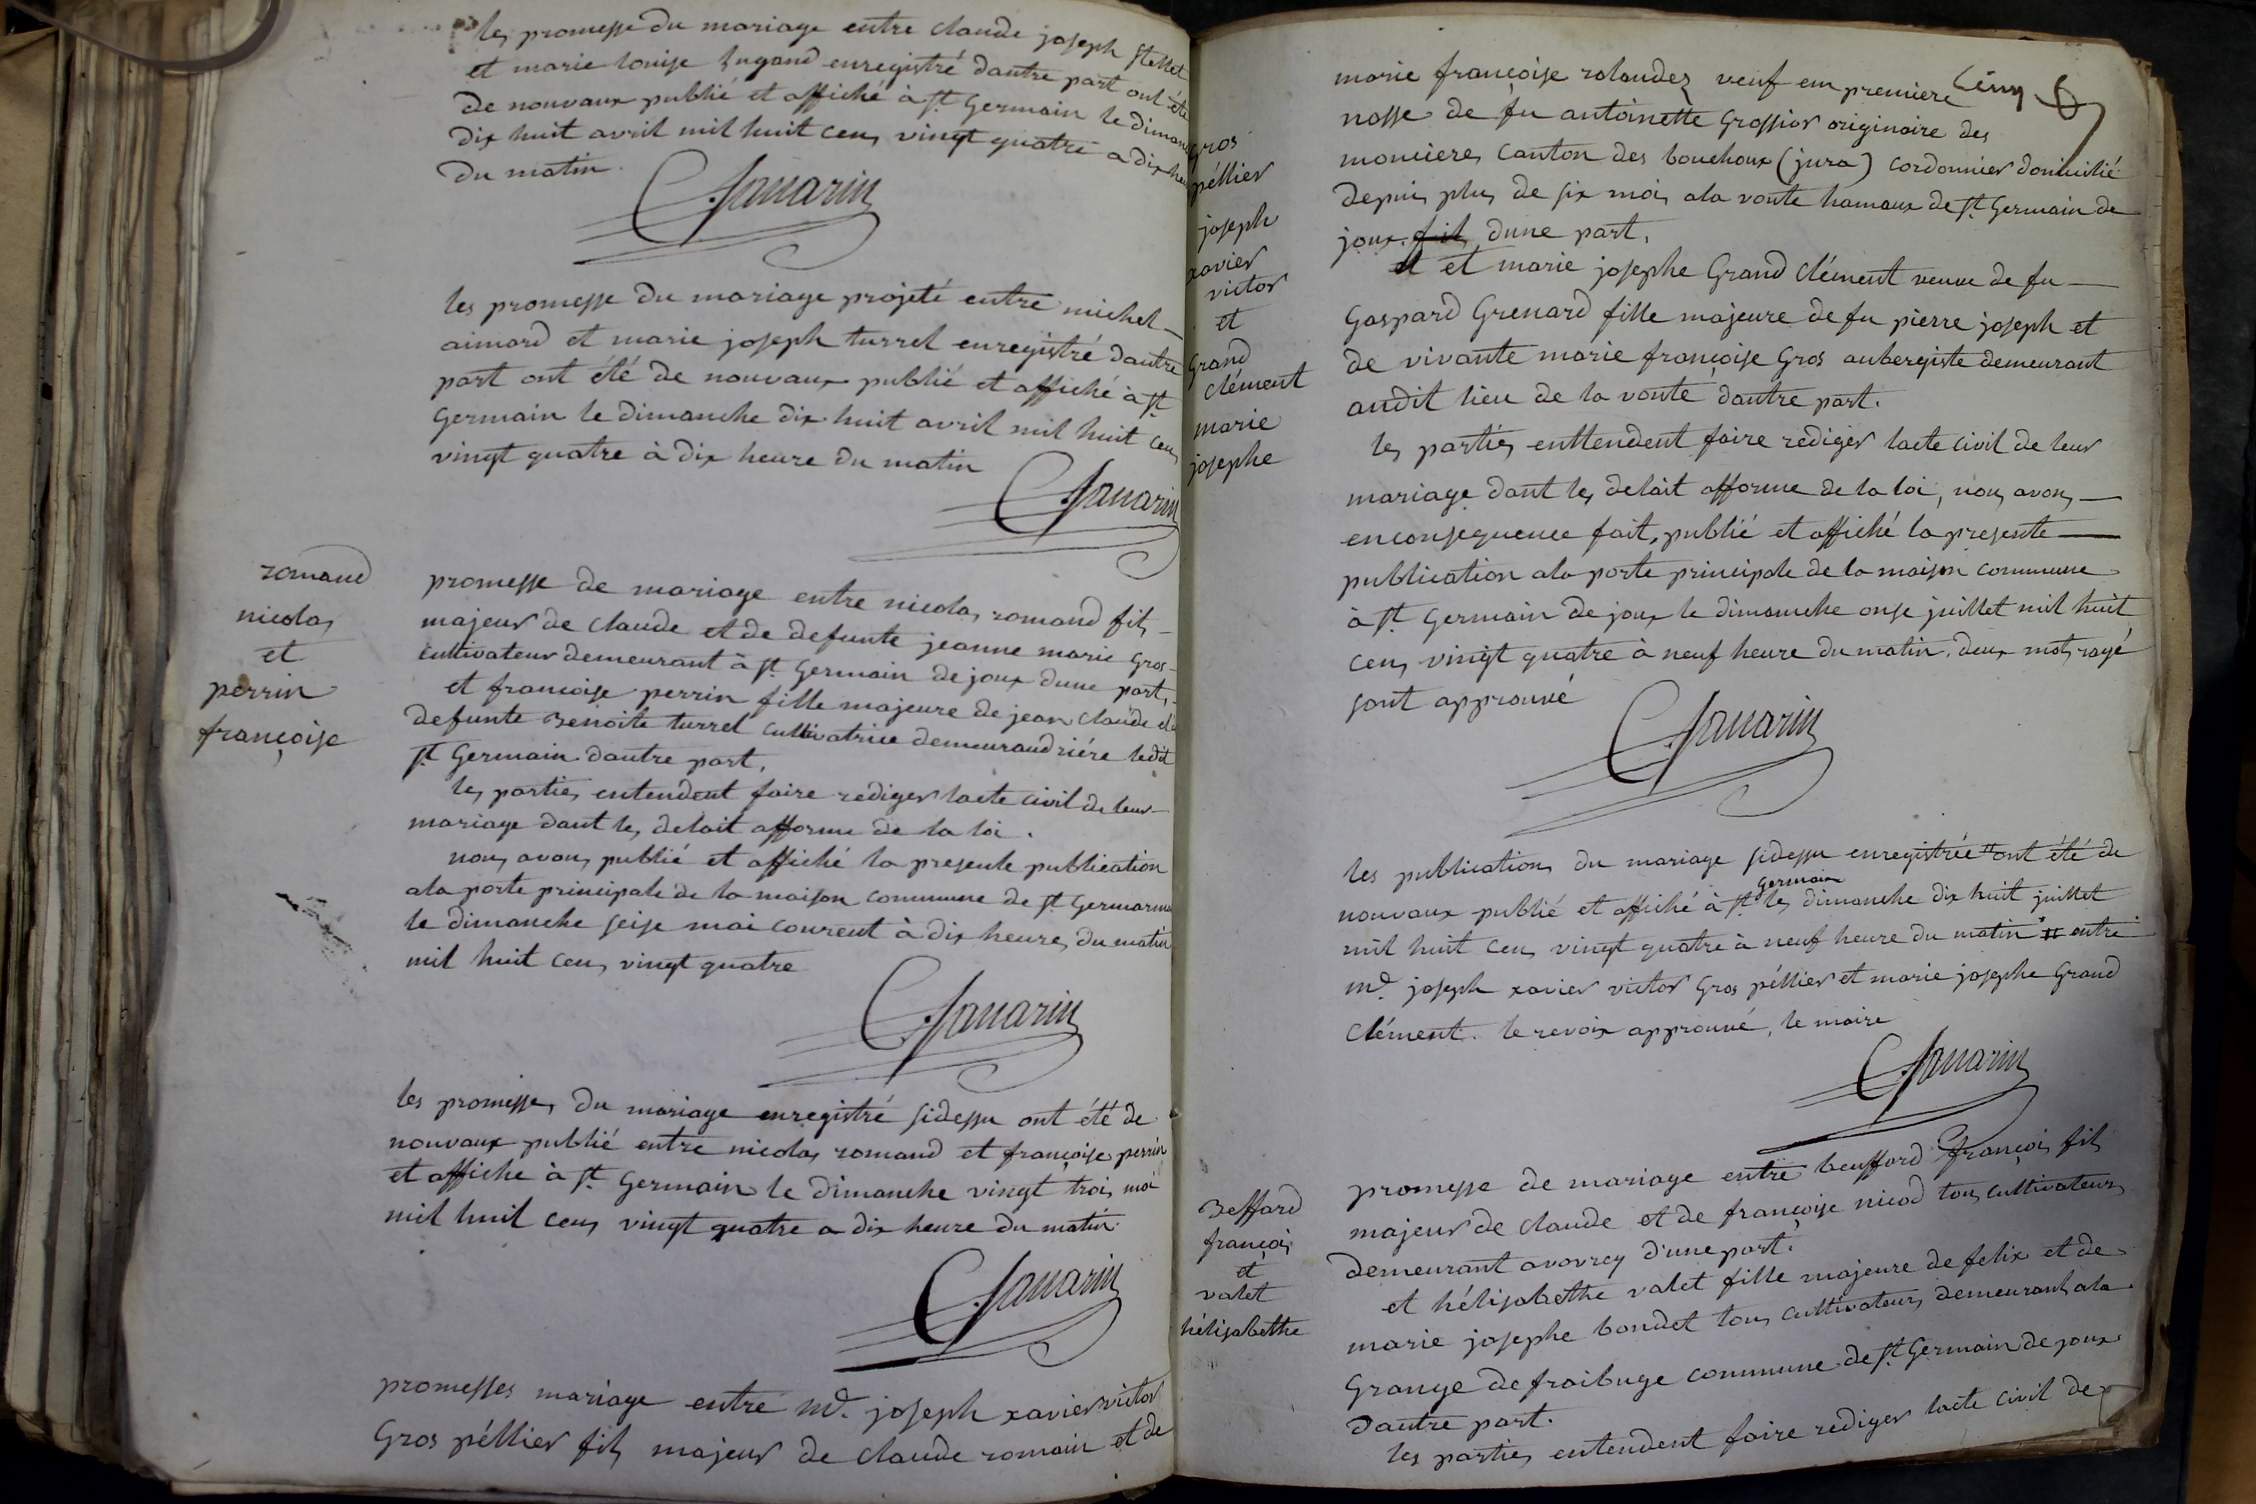 les promesse du mariage entre claude joseph
et marie louise enregistré dautre part ont été
de nouvaux publié et affiché à st Germain le diman
dix huit avril mil huit cens vingt quatre a dix heu
du matin.
C. Savarin
les promesse du mariage projeté entre michel
aimard et marie joseph turrel enregistré dautre
part ont été de nouvaux publié et affiché à st
Germain le dimanche dix huit avril mil huit cens
vingt quatre à dix heure du matin
C. Savarin
romand
nicolas
et
perrin
françoise
promesse de mariage entre nicolas romand fils
majeur de claude et de defunte jeanne marie Gros
cultivateur demeurant à st Germain de joux dune part,
et francoise perrin fille majeure de jean claude et
defunte Benoite turrel cultivatrice demeurandriére ledit
st Germain dautre part,
les parties entendent faire rediger lacte civil de leur
mariage dant les delait afforme de la loi.
nous avons publié et affiché la presente publication
ala porte principale de la maison commune de st Germain
le dimanche seise mai courent à dix heures du matin
mil huit cens vingt quatre
C. Savarin
les promesses du mariage enregistré sidessu ont été de
nouvaux publié entre nicolas romand et françoise perrin
et affiche à st Germain le dimanche vingt trois mai
mil huit cens vingt quatre a dix heure du matin
C. Savarin
promesses mariage entre md. joseph xavier victor
Gros péllier fils majeur de claude romain et de
marie françoise rolandez veuf em premiere
nosse de fu antoinette Grossior originaire des
moucieres canton des bouchoux (jura) cordonnier domicilié
depuis plus de six mois ala voute hamaux de st Germain de
joux. fils dune part.
Gros
péllier
joseph
xavier
victor
et
Grand
clément
marie
josephe
et et marie josephe Grand clément veuve de fu
Gaspard Grenard fille majeure de fu pierre joseph et
de vivante marie françoise Gros aubergiste demeurant
audit lieu de la voute dautre part.
les parties enttendent faire rediger lacte civil de leur
mariage dant les delait afforme de la loi, nous avons
enconsequence fait, publié et affiché la presente
publication ala porte principale de la maison commune
à st Germain de joux le dimanche onse juillet mil huit
cens vingt quatre à neuf heure du matin. deux mots rayé
sont approuvé
C. Savarin
les publications du mariage sidessu enregistrée ont été de
nouvaux publié et affiché à st Germain les dimanche dix huit juillet
mil huit cens vingt quatre à neuf heure du matin entre
md. joseph xavier victor Gros péllier et marie josephe Grand
clément. le revoix approuvé, le maire
C. Savarin
Beffard
françois
et
valet
hélisabethe
promesse de mariage entre beuffard françois fils
majeur de claude et de françoise nicod tous cultivateurs
demeurant avovrey d'une part.
et hélisabethe valet fille majeure de felix et de
marie josephe bondet tous cultivateurs demeurants ala
Grange de fraibuge commune de st Germain de joux
dautre part.
les parties entendent faire rediger lacte civil de